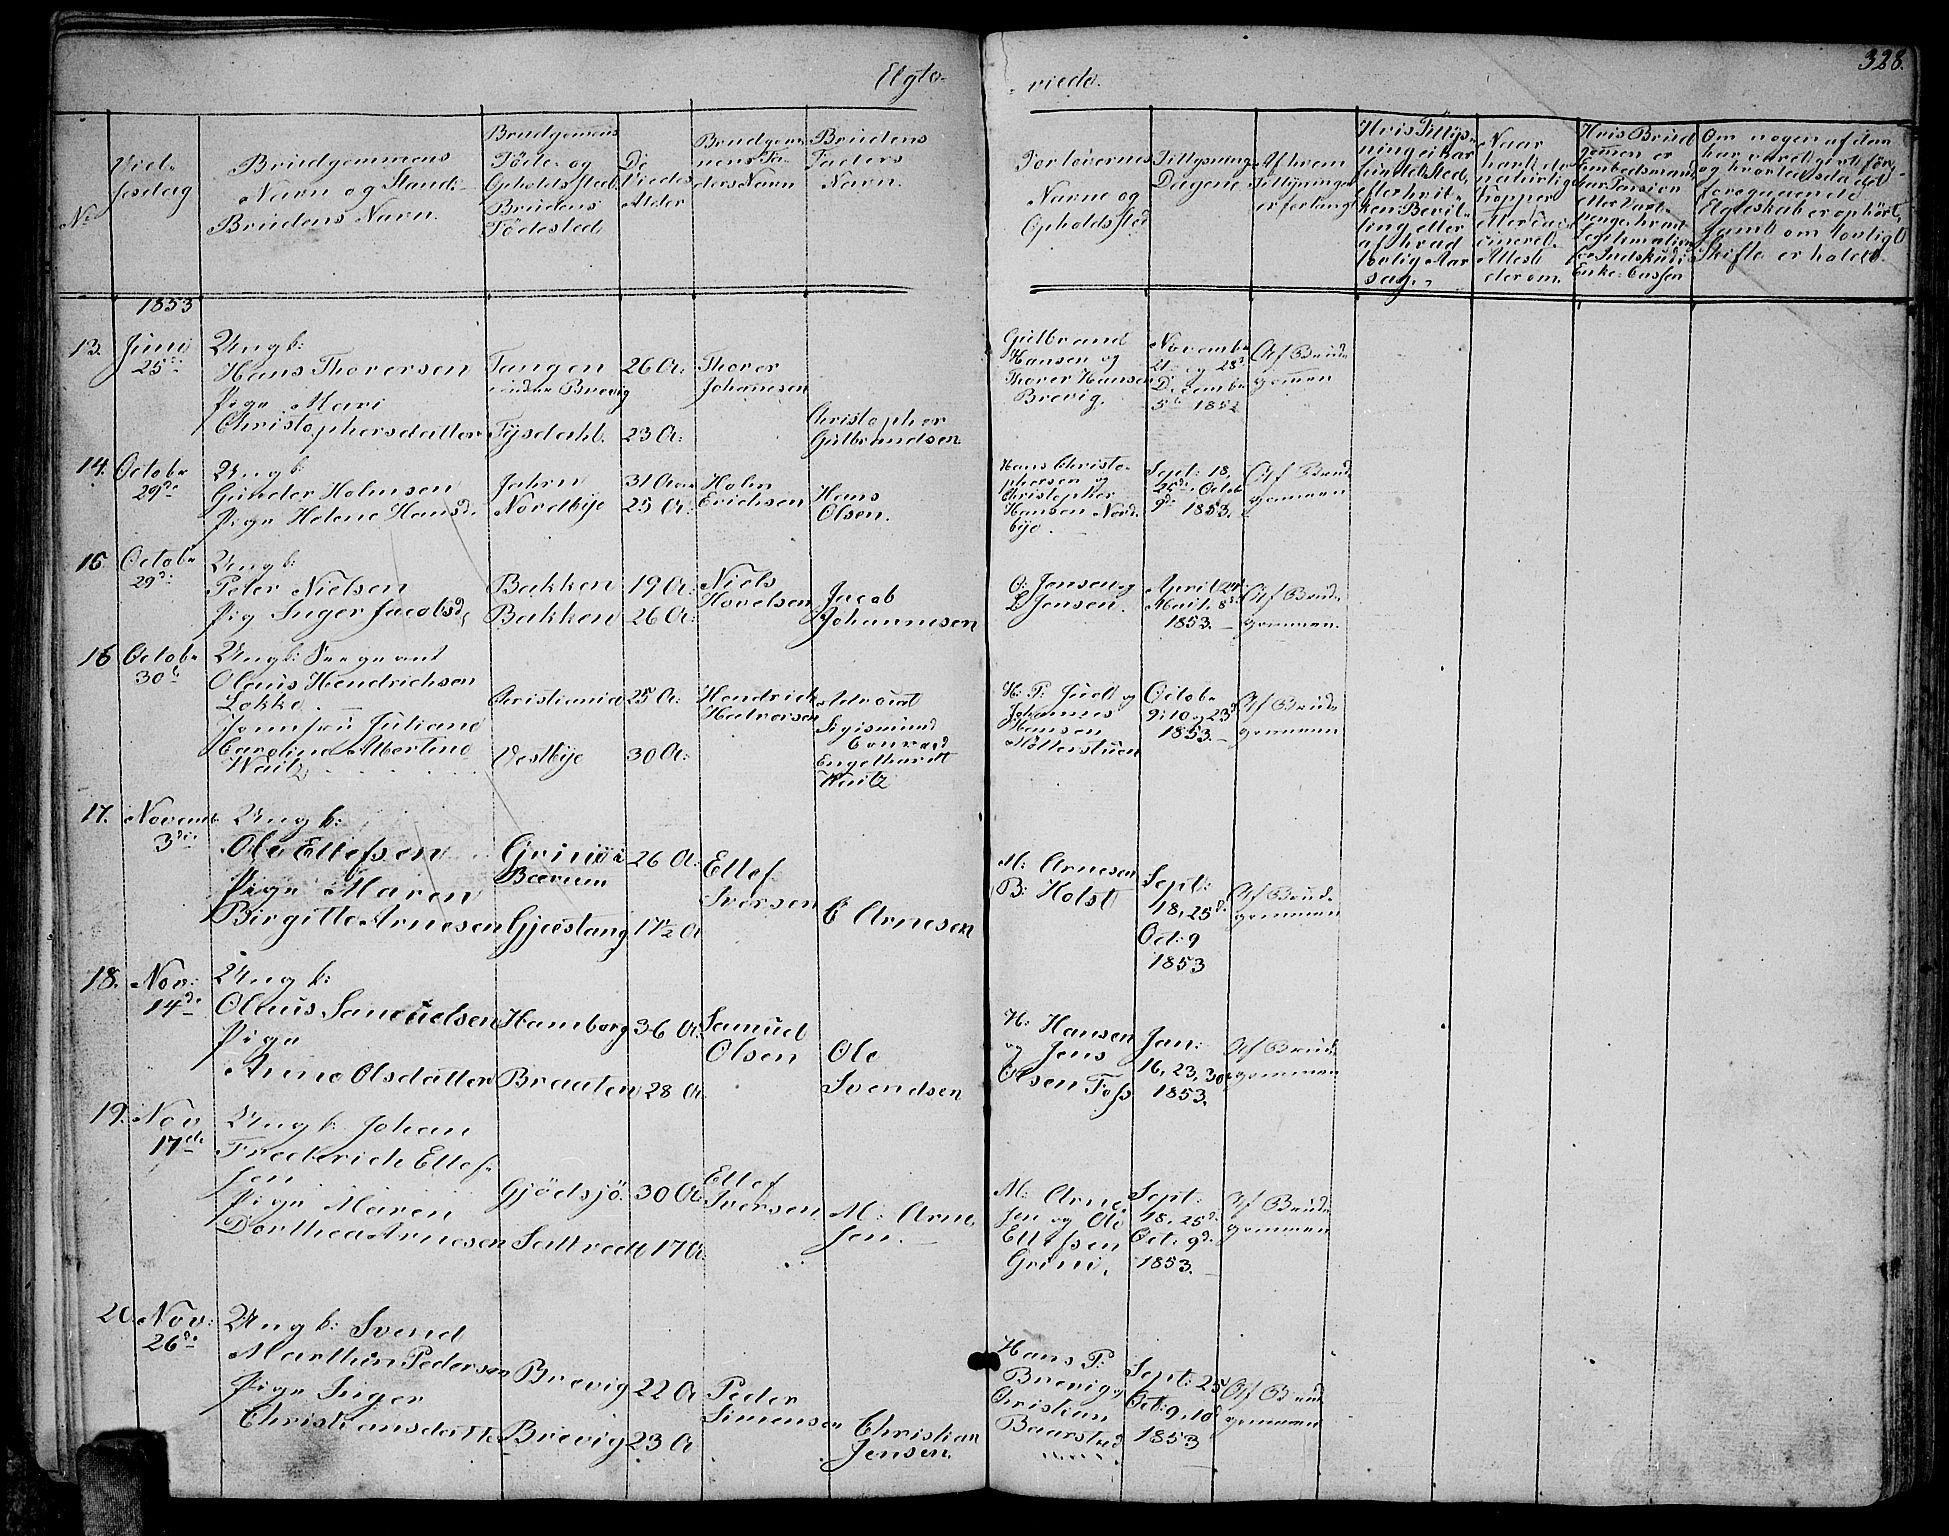 Egte-
viede.
328.
No
Viel-
sesdag
Brudgommens
Navn og Stand.
Brudens Navn.
Brudgomens
Føde- og
Opholdssted
Brudens
Fødested
De
Viedes
Alder
Brudgom-
mens Fa-
ders Navn
Brudens
Faders
Navn.
Forlovernes
Navne og
Opholdssted
Tillysnings
Dagene
Af hvem
Tillysningen
er forlangt
Hvis Tillys-
ning ei har
fundet Sted,
efter hvil-
ken Bevil-
ling eller
af hvad
lovlig Aar-
sag.
Naar
havt de
naturlige
Kopper
eller vac-
cineret.
Attest
derom.
Hvis Brud
gomen er
Embedsmand
har Pension
eller Vart-
penge, hvad
Legitimation
for Indskud i
Enke-Cassen
Om nogen af dem
har været gift før,
og hvorledes da det
foregaaende
Egteskab er ophørt,
samt om lovligt
Skifte er holdt.
1853
13.
Juni
25de
Ungk:
Hans Thorersen
Pige Mari
Christophersdatter
Tangen
under Brevig
Tysdahl.
26 A:
23 A:
Thorer
Johanesen
Christopher
Gulbrandsen
Gulbrand
Hansen og
Thorer Hansen
Brevig.
Novembe
21 og 28d
Decembe
5te 1852
Af Brud-
gomen
14.
Octobe
29de
Ungk.
Gunder Holmsen
Pige Helene Hansd.
Jahrn
Nordbye
31 Aar
25 A:
Holm
Erichsen
Hans
Olsen.
Hans Christo-
phersen og
Christopher
Hansen Nord-
bye.
Sept: 18,
25de, Octob
9d 1853.
Af Brud-
gommen
15
Octobe
29d:
Ungk:
Peter Nielsen
Pig Inger Jacobsd,
Bakken
Bakken
19 A:
26 A:
Niels
Hovelsen
Jacob
Johannesen
O: Jensen og
L Jensen.
April 24
Mai 1, 8d
1853.
Af Brud-
gommen.
16
Octobe
30te
Ungk: Sergeant
Olaus Hendrichsen
Løkke.
Jomfru Juliane
Caroline Albertine
Waitz
Christiania
Vestbye
25 A:
30 A:
Hendrich
Halvorsen
Sigismund
Conrad
Engelhardt
Waitz
H: P: Juell og
Johannes
Hansen
Møllerstuen
Octobe
9, 10 og 23d
1853.
Af Brud-
gommen
17.
Novemb
3die
Ungk:
Ole Ellefsen
Pige Maren
Birgitte Arnesen
Grini i
Bærum
Gjestang
26 A:
17½ A
Ellef
Iversen
C Arnesen
M: Arnesen
B: Holst
Sept:
18, 25d.
Oct: 9
1853
Af Brud-
gommen
18.
Nov:
14de
Ungk:
Olaus Samuelsen
Pige
Anne Olsdatter
Hamborg
Braaten
36 A:
28 A.
Samuel
Olsen
Ole
Svendsen
H: Hansen
og Jens
Olsen Foss
Jan:
16, 23, 30
1853.
Af Brud-
gommen
19.
Nov
17de
Ungk: Johan
Frederich Ellef-
sen
Pige Maren
Dorthea Arnesen
Gjødsjø.
Saltvedt
30 A
17 A:
Ellef
Iversen
M: Arne-
sen.
M: Arne-
sen og Ole
Ellefsen
Grini.
Sept:
18, 25d.
Oct. 9d.
1853.
Af Brud-
gommen
20.
Nov:
26de
Ungk: Svend
Marthin Pedersen
Pige Inger
Christiansdatter
Brevig
Brevig
22 A
23 A
Peder
Simensen
Christian
Jensen.
Hans P:
Brevig og
Christian
Baarstad
Sept: 25
Oct: 9, 10
1853
Af Brud-
gommen